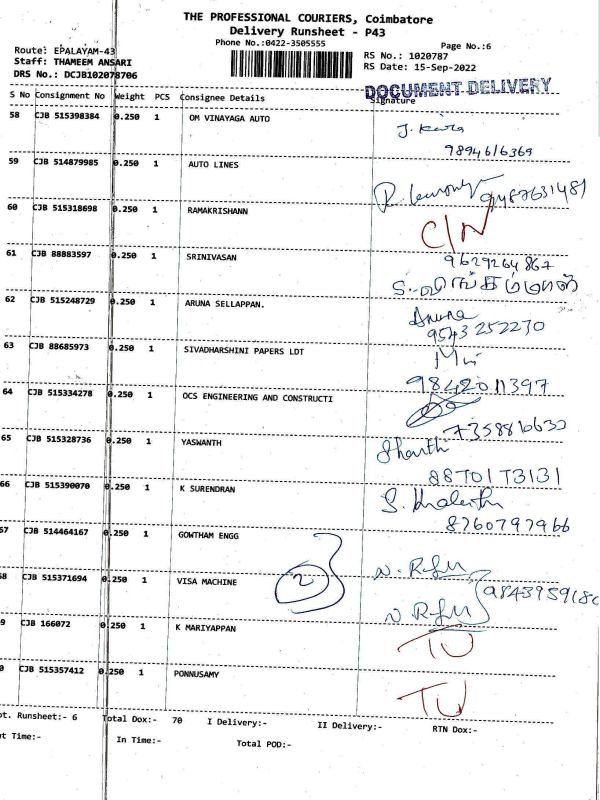 THE PROFESSIONAL COURIERS, Coimbatore
Delivery Runsheet - P43
Phone No.:0422-3505555
Page No.:6
Route: EPALAYAM-43
RS No.: 1020787
Staff: THAMEEM ANSARI
RS Date: 15-Sep-2022
DRS No.: DCJB102078706
DOCUMENT DELIVERY
S No Consignment No Weight PCS Consignee Details Signature
58 CJB 515398384 0.250 1 OM VINAYAGA AUTO
9894616369
59 CJB 514879985 0.250 1 AUTO LINES
9487631481
60 CJB 515318698 0.250 1 RAMAKRISHANN
C/N
61 CJB 88883597 0.250 1 SRINIVASAN
9629264867
62 CJB 515248729 0.250 1 ARUNA SELLAPPAN.
Aruna
9543252270
63 CJB 88685973 0.250 1 SIVADHARSHINI PAPERS LDT
9842011397
64 CJB 515334278 0.250 1 OCS ENGINEERING AND CONSTRUCTI
65 CJB 515328736 0.250 1 YASWANTH
Shanth
8870173131
66 CJB 515390070 0.250 1 K SURENDRAN
8760797966
57 CJB 514464167 0.250 1 GOWTHAM ENGG
58 CJB 515371694 0.250 1 VISA MACHINE
2
984395918
9 CJB 166072 0.250 1 K MARIYAPPAN
TU
0 CJB 515357412 0.250 1 PONNUSAMY
TU
ot. Runsheet:- 6 Total Dox:- 70 I Delivery:- II Delivery:- RTN Dox:-
ut Time:- In Time:- Total POD:-